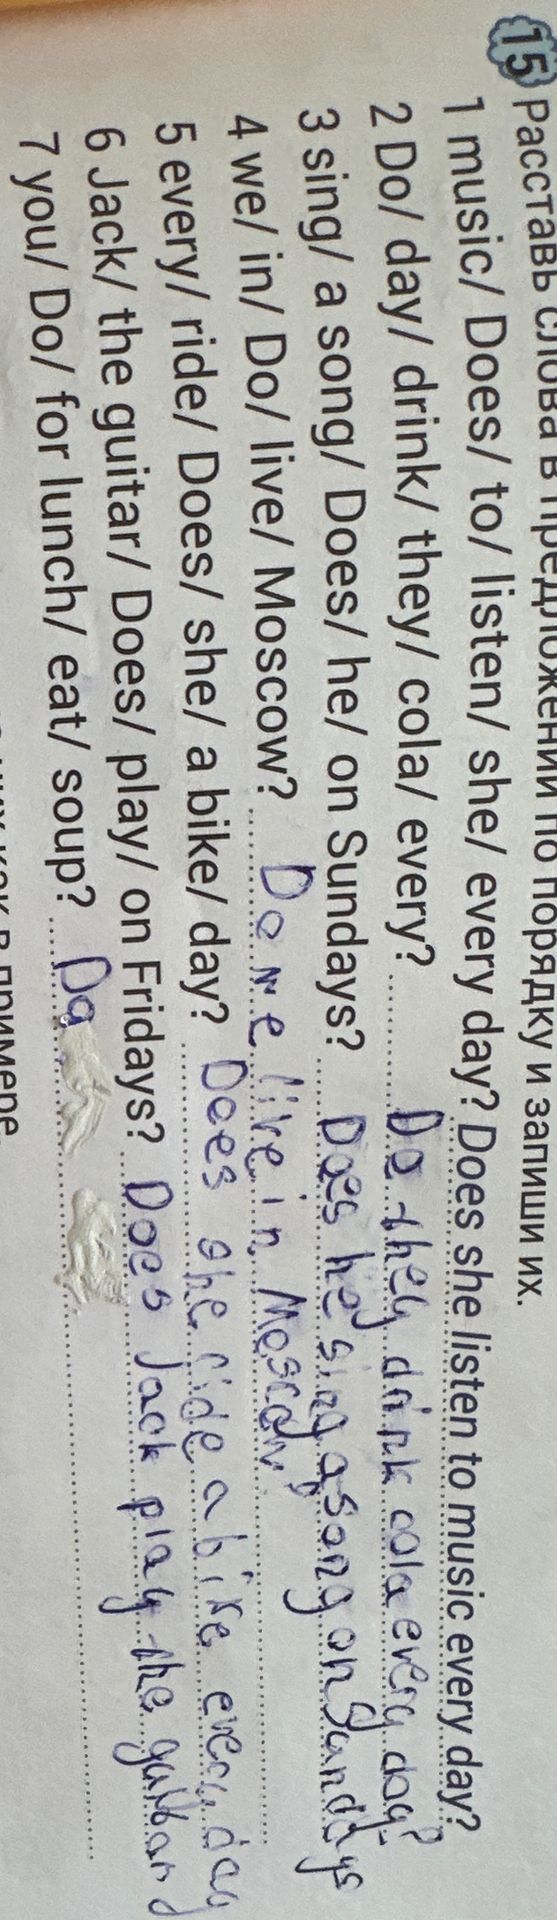 15 Расставь слова в предложении по порядку и запиши их.
1 music/ Does/ to/ listen/ she/ every day? Does she listen to music every day?
2 Do/ day/ drink/ they/ cola/ every? Do they drink cola every day?
3 sing/ a song/ Does/ he/ on Sundays? Does he sing a song on Sundays
4 we/ in/ Do/ live/ Moscow? Do we live in Moscow?
5 every/ ride/ Does/ she/ a bike/ day? Does she ride a bike every day
6 Jack/ the guitar/ Does/ play/ on Fridays? Does Jack play the
7 you/ Do/ for lunch/ eat/ soup? Do
как в примере